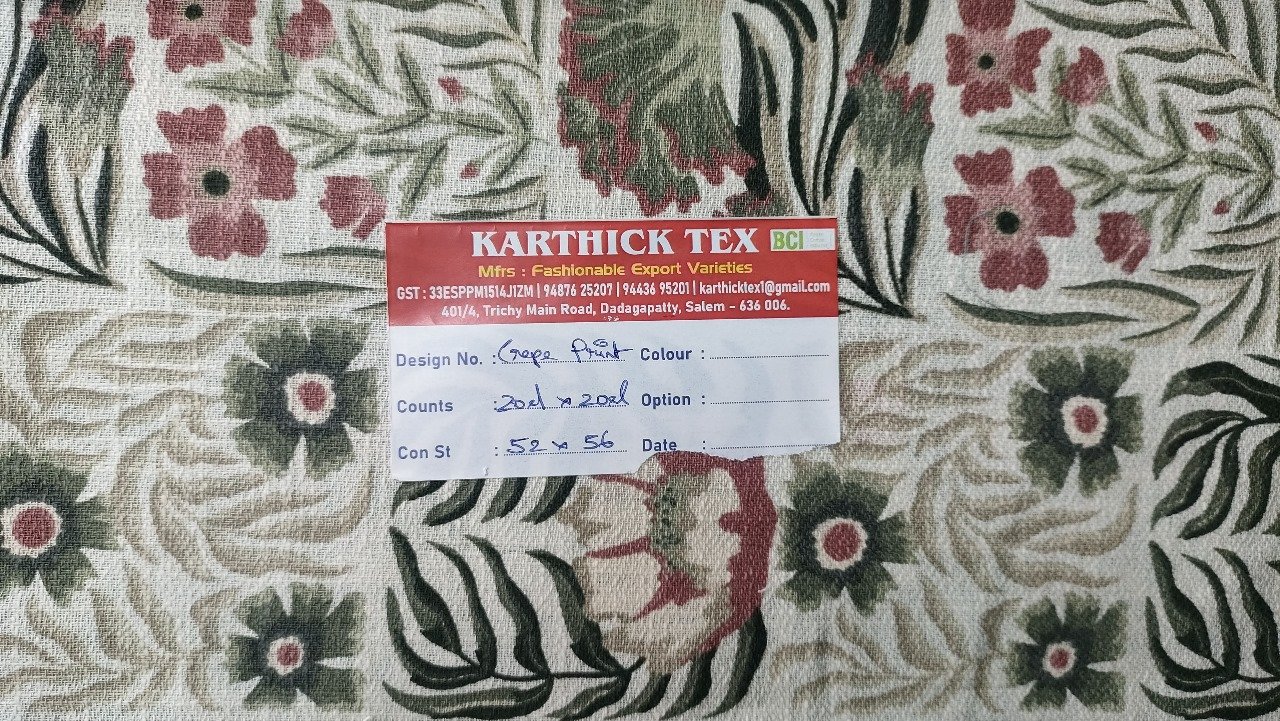 KARTHICK TEX BCI
Mfrs : Fashionable Export Varieties
GST : 33ESPPM1514J1ZM | 94876 25207 | 94436 95201 | karthicktex1@gmail.com
401/4, Trichy Main Road, Dadagapatty, Salem - 636 006.
Design No. : Crepe Print Colour :
Counts : 20cl x 20cl Option :
Con St : 52 x 56 Date :